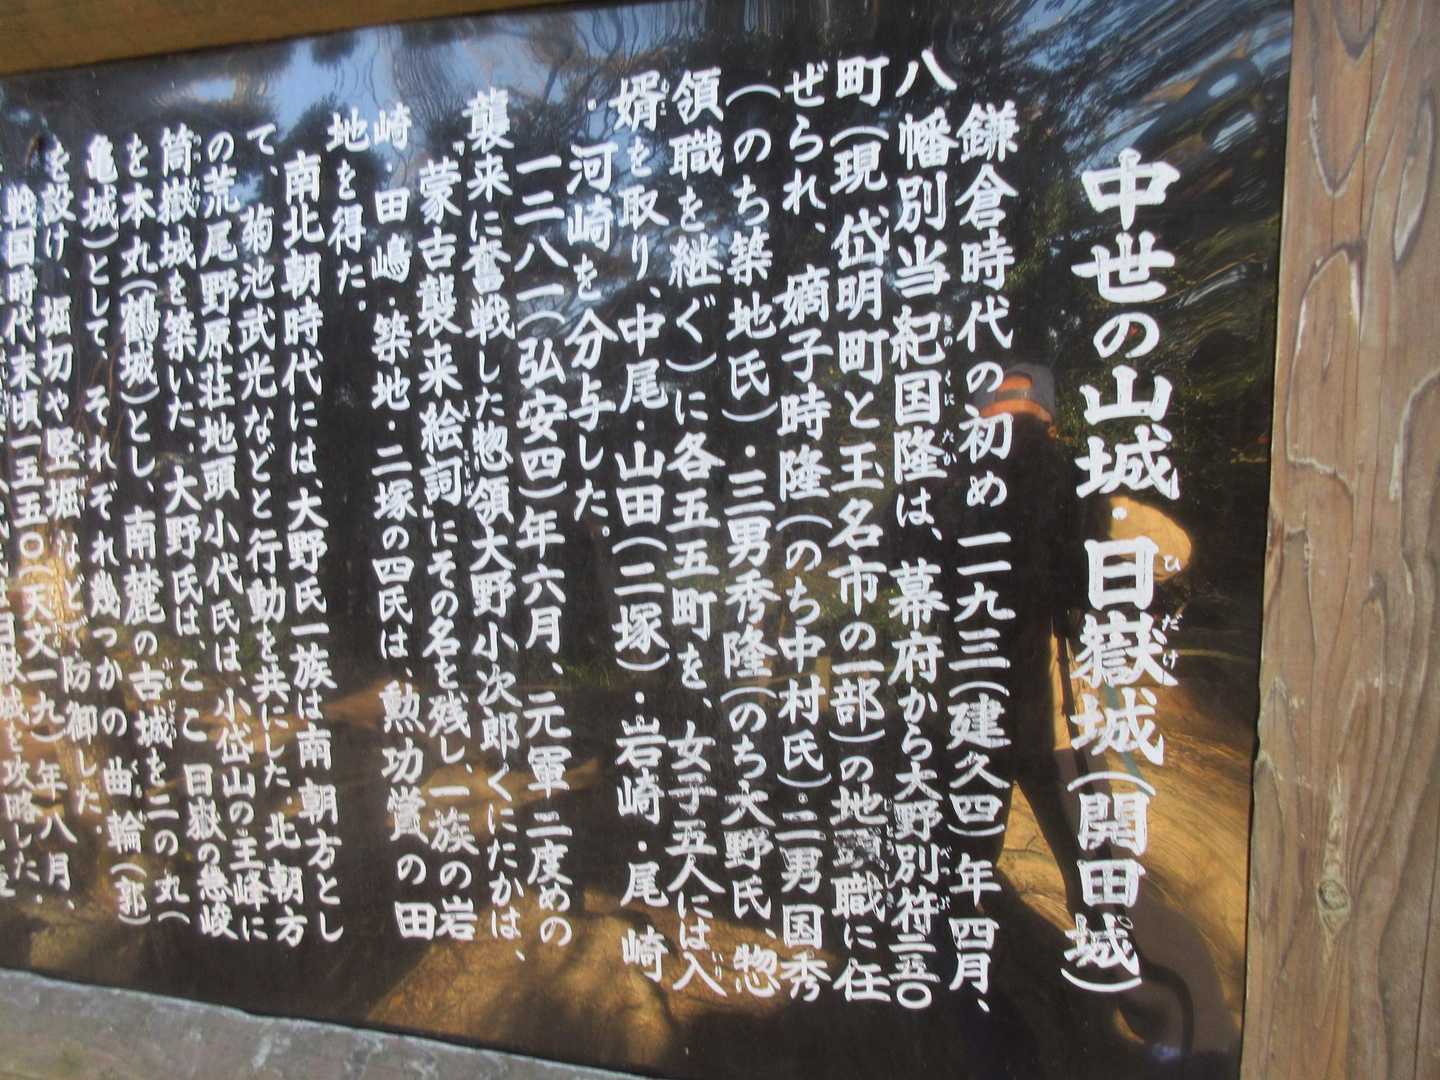 中世の山城・日嶽城(開田城)
鎌倉時代の初め一一九三(建久四)年四月、
八幡別当紀国隆は、幕府から大野別符二五〇
町(現岱明町と玉名市の一部)の地頭職に任
ぜられ、嫡子時隆(のち中村氏)・二男国秀
(のち築地氏)・三男秀隆(のち大野氏、惣
領職を継ぐ)に各五五町を、女子五人には入
婿を取り、中尾・山田(二塚)・岩崎・尾崎
・河崎を分与した。
一二八一(弘安四)年六月、元軍二度めの
襲来に奮戦した惣領大野小次郎くにたかは、
「蒙古襲来絵詞」にその名を残し、一族の岩
崎・田嶋・築地・二塚の四氏は、勲功賞の田
地を得た。
南北朝時代には、大野氏一族は南朝方とし
て、菊池武光などと行動を共にした。北朝方
の荒尾野原荘地頭小代氏は、小岱山の王峰に
筒嶽城を築いた。大野氏は、ここ日嶽の急峻
を本丸(鶴城)とし、南麓の古城を二の丸(
亀城)として、それぞれ幾つかの曲輪(郭)
を設け、堀切や竪堀などで防御した。
戦国時代末頃一五五〇(天文一九)年八月、
日嶽城を攻略した。